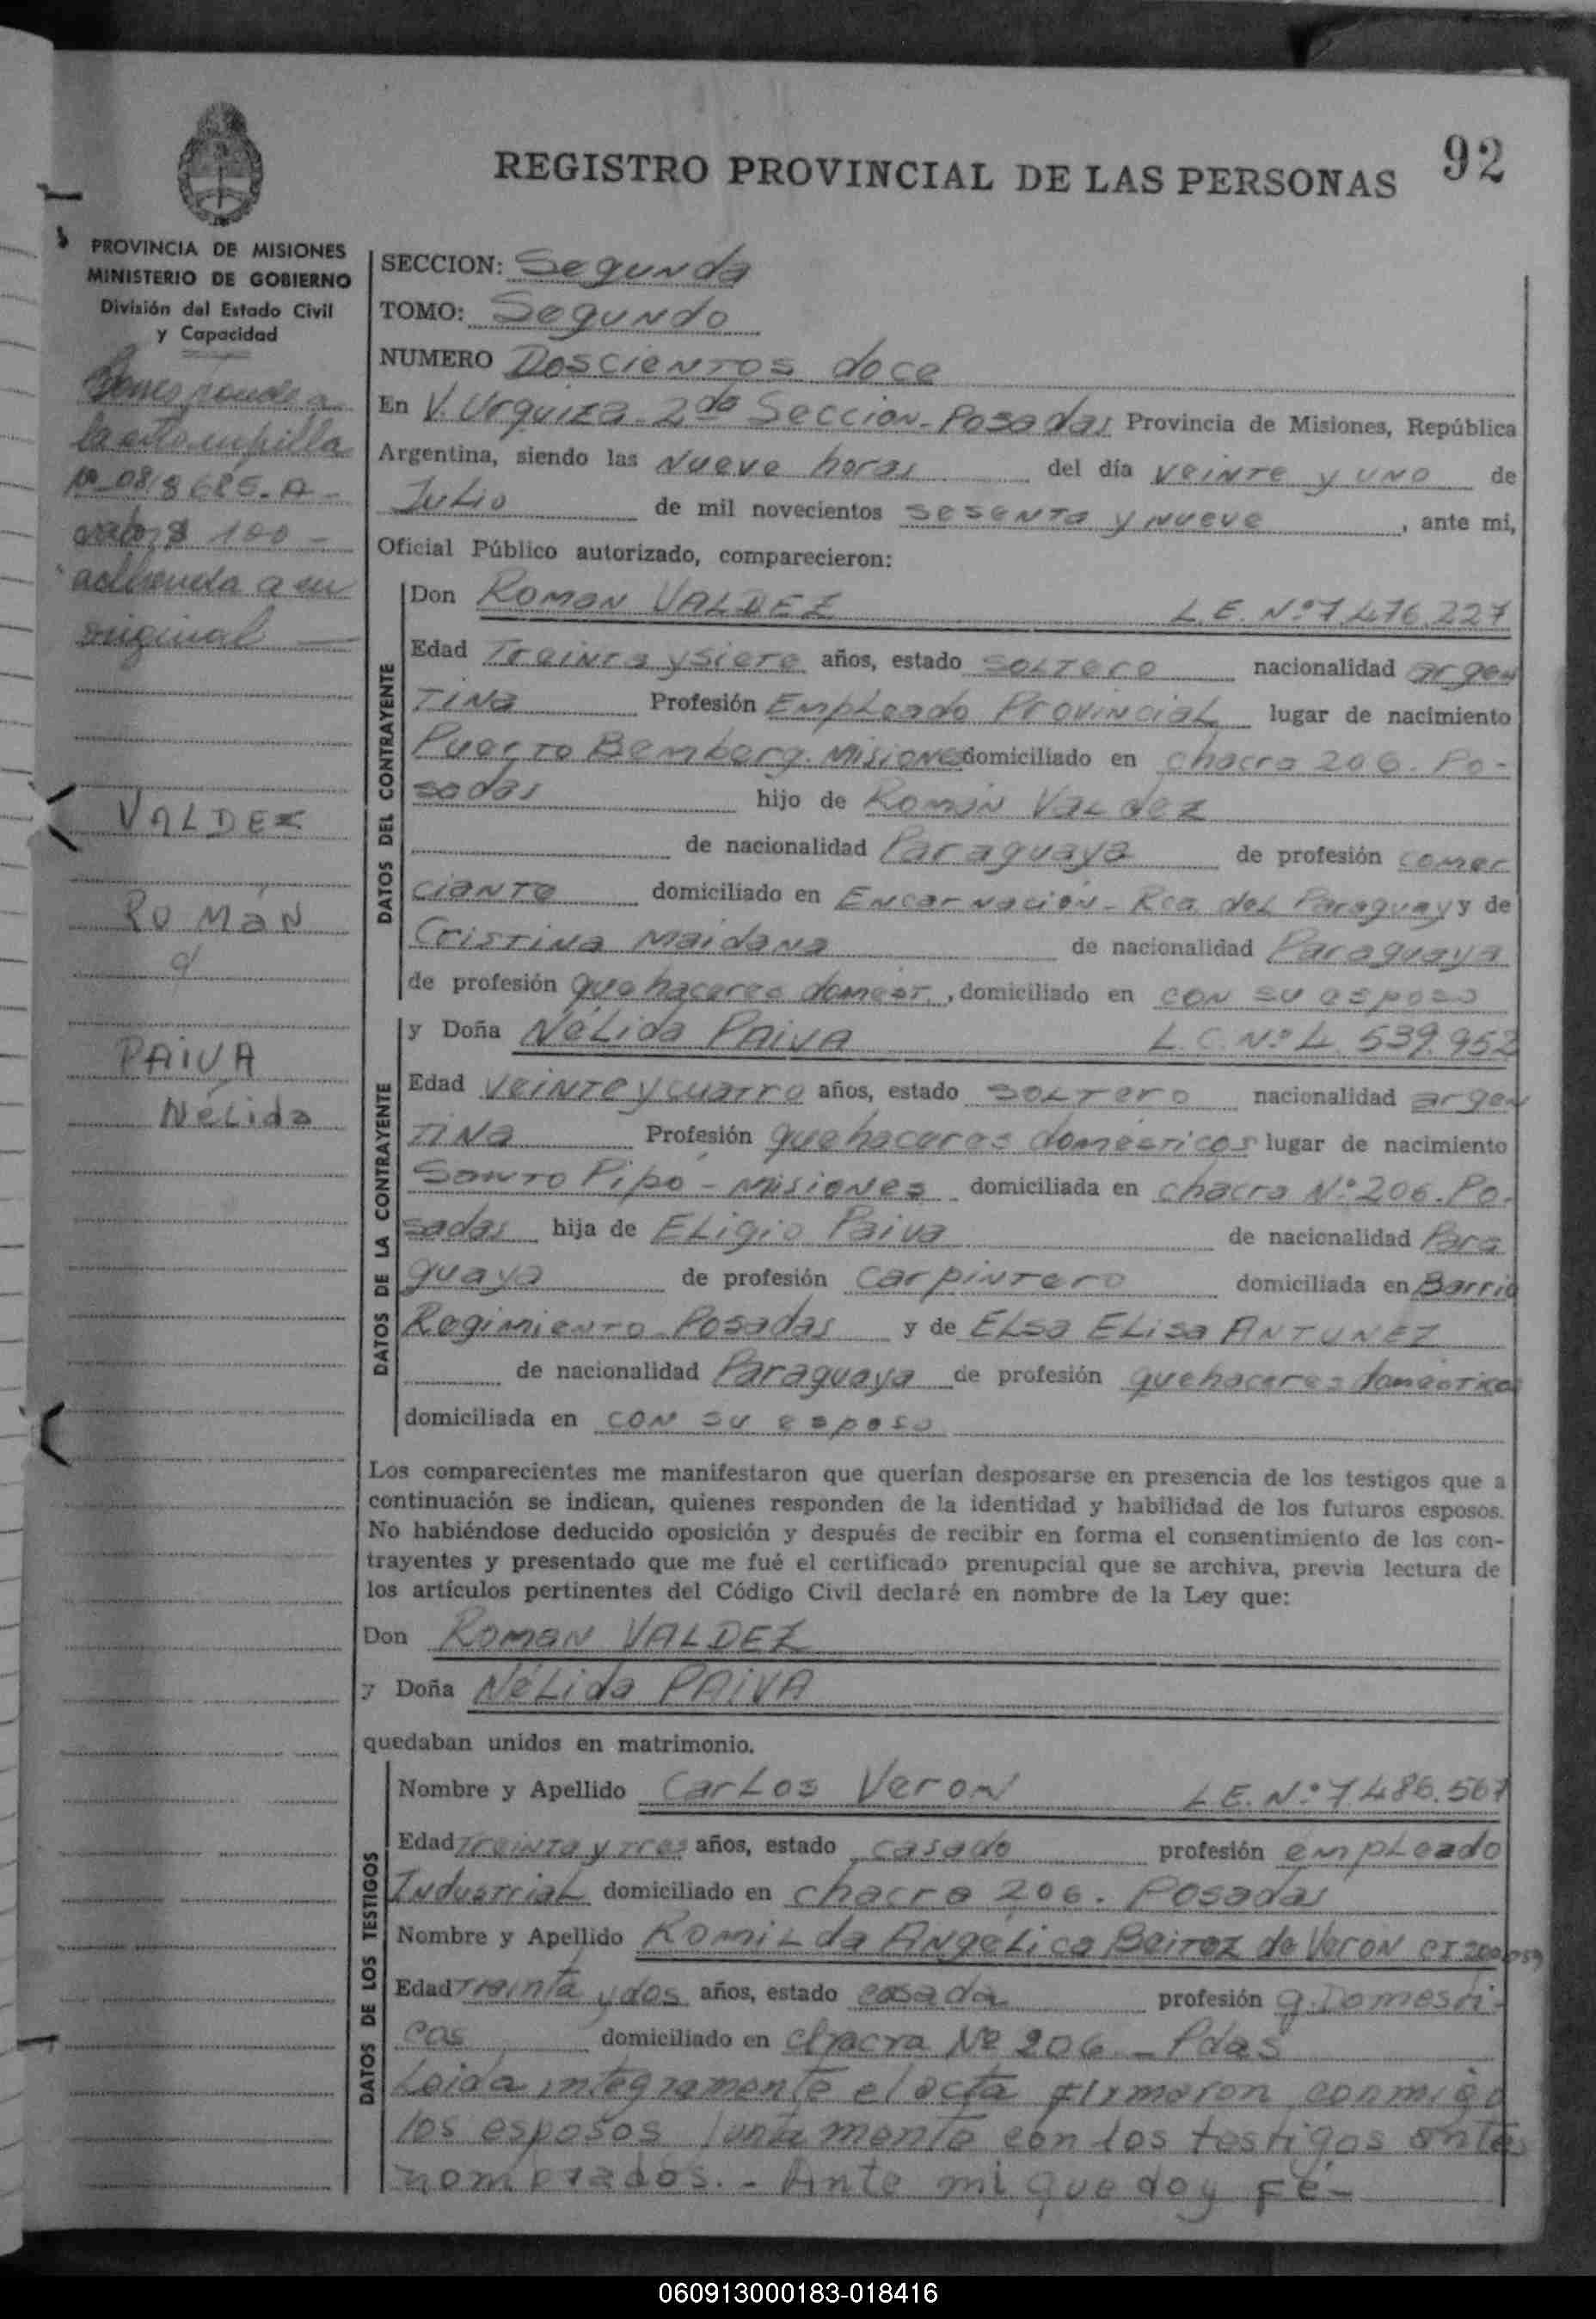 REGISTRO PROVINCIAL DE LAS PERSONAS
92
PROVINCIA DE MISIONES
MINISTERIO DE GOBIERNO
División del Estado Civil
y Capacidad
Corresponde a
la estampilla
valor $ 100 -
adherida a su
original
VALDEZ
ROMAN
PAIVA
Nélida
SECCION: Segunda
TOMO: Segundo
NUMERO Doscientos doce
En V. Urquiza-2da Seccion-Posadas Provincia de Misiones, República
Argentina, siendo las Nueve horas del día veinte y uno de
Julio de mil novecientos sesenta y nueve, ante mi,
Oficial Público autorizado, comparecieron:
DATOS DEL CONTRAYENTE
Don Roman VALDEZ L.E. Nº 7.476.227
Edad Treinta y siete años, estado soltero nacionalidad argen
tina Profesión Empleado Provincial lugar de nacimiento
Puerto Bemberg. Misiones domiciliado en chacra 206. Po-
sadas hijo de Román Valdez
de nacionalidad Paraguaya de profesión comer
ciante domiciliado en Encarnación- Rca. del Paraguay y de
Cristina Maidana de nacionalidad Paraguaya
de profesión quehaceres domést., domiciliado en con su esposo
DATOS DE LA CONTRAYENTE
y Doña Nélida PAIVA L.C. Nº 4.539.953
Edad veinte y cuatro años, estado soltero nacionalidad argen
tina Profesión quehaceres domésticos lugar de nacimiento
Santo Pipó - Misiones domiciliada en chacra Nº 206. Po-
sadas hija de Eligio Paiva de nacionalidad Para
guaya de profesión carpintero domiciliada en Barrio
Regimiento Posadas y de Elsa Elisa ANTUNEZ
de nacionalidad Paraguaya de profesión quehaceres domésticos
domiciliada en con su esposo
Los comparecientes me manifestaron que querían desposarse en presencia de los testigos que a
continuación se indican, quienes responden de la identidad y habilidad de los futuros esposos.
No habiéndose deducido oposición y después de recibir en forma el consentimiento de los con-
trayentes y presentado que me fué el certificado prenupcial que se archiva, previa lectura de
los artículos pertinentes del Código Civil declaré en nombre de la Ley que:
Don Roman VALDEZ
y Doña Nélida PAIVA
quedaban unidos en matrimonio.
DATOS DE LOS TESTIGOS
Nombre y Apellido Carlos Veron L.E. Nº 7.486.567
Edad Treinta y tres años, estado casado profesión empleado
Industrial domiciliado en chacra 206. Posadas
Nombre y Apellido Romilda Angélica Beitez de Veron CI
Edad Treinta y dos años, estado casada profesión q. Domesti-
cos domiciliado en chacra Nº 206 - Pdas
Leida integramente el acta firmaron conmigo
los esposos juntamente con los testigos antes
nombrados. - Ante mi que doy Fé-
060913000183-018416